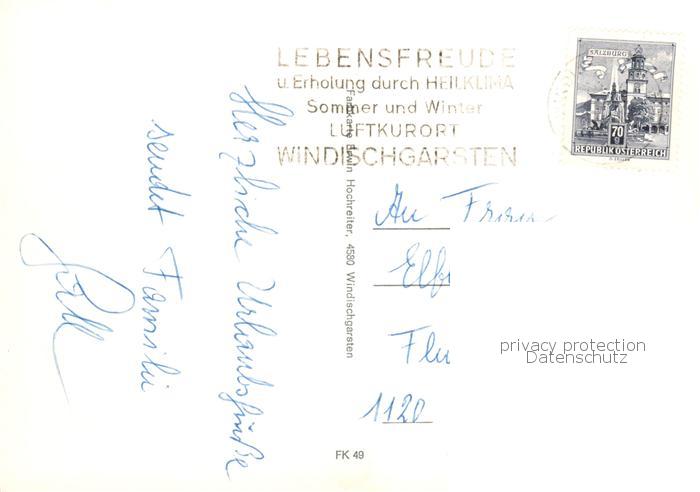 LEBENSFREUDE
u. Erholung durch HEILKLIMA
Sommer und Winter
LUFTKURORT
WINDISCHGARSTEN
SALZBURG
70
g
REPUBLIK ÖSTERREICH
Herzliche Urlaubsgrüße
sendet Familie
Farbkarte Erwin Hochreiter, 4580 Windischgarsten
An Frau
Elf
1120
privacy protection
Datenschutz
FK 49